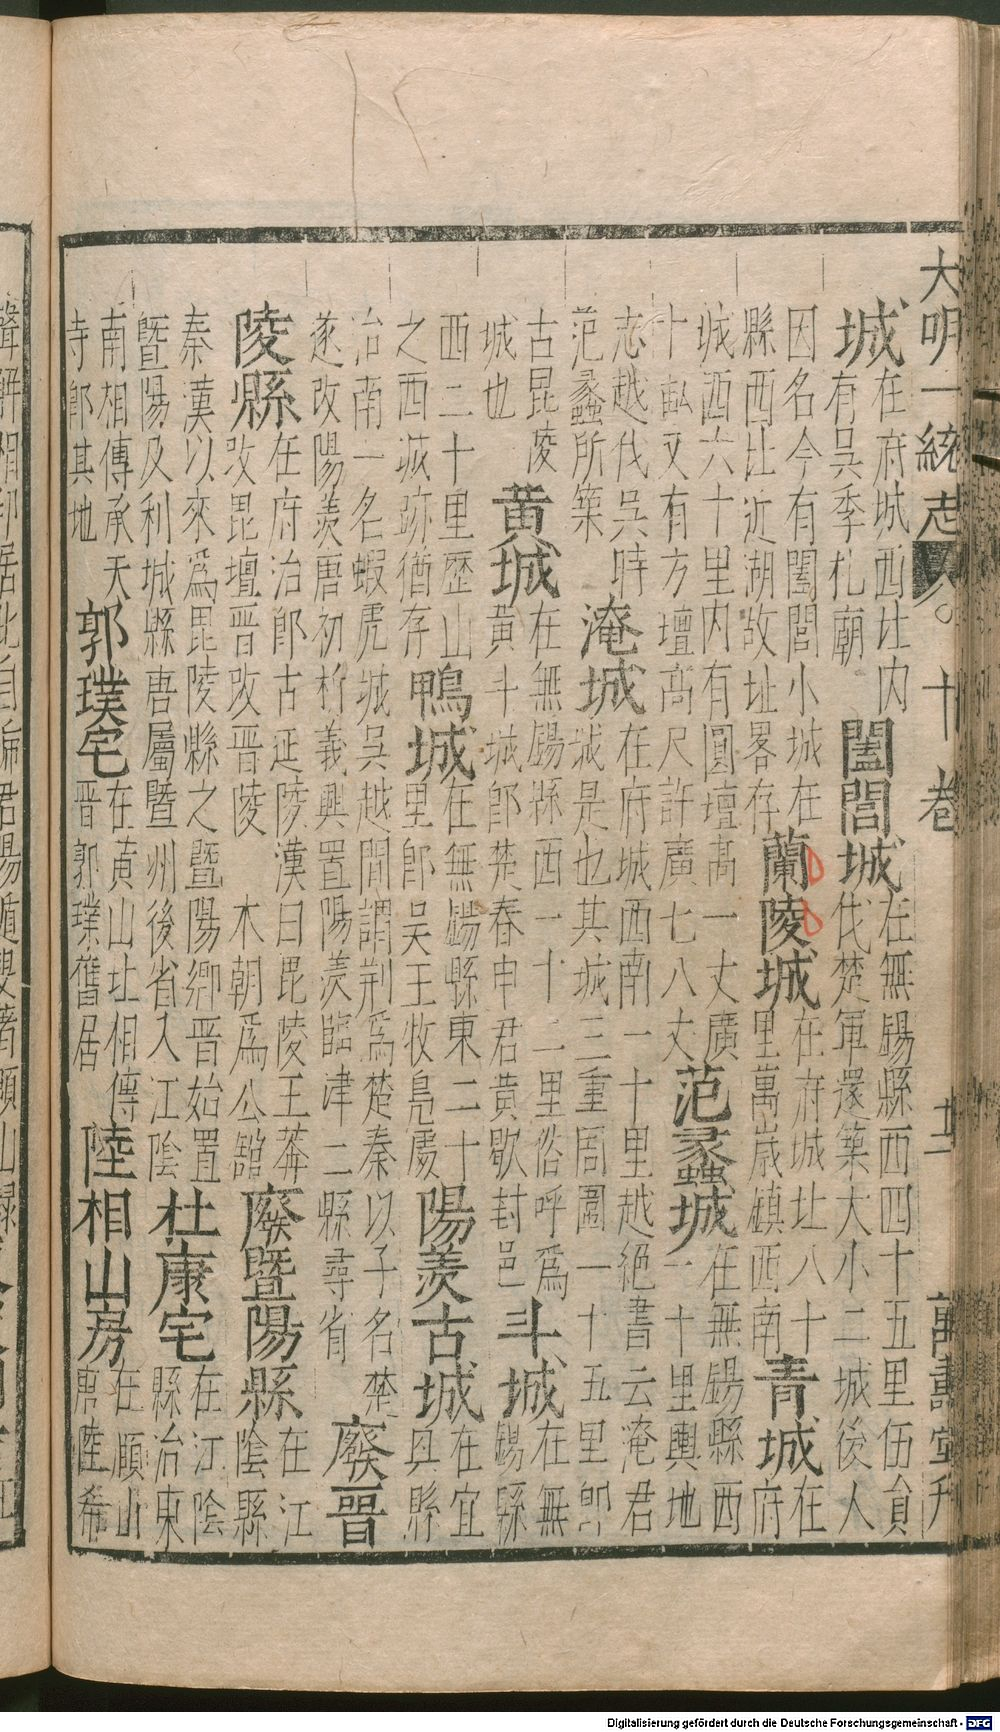 大明一統志 十卷 十二 萬壽堂刋
城
在府城西北内
有吳季札廟
闔閭城
在無錫縣西四十五里伍員
伐楚軍還築大小二城後人
因名今有闔閭小城在
縣西北近湖故址畧存
蘭陵城
在府城北八十
里萬嵗鎮西南
青城
在
府
城西六十里内有圓壇高一丈廣
十畝又有方壇高尺許廣七八丈
范蠡城
在無錫縣西
一十里輿地
志越伐吳時
范蠡所築
淹城
在府城西南一十里越絕書云淹君
城是也其城三重周圍一十五里卽
古毘陵
城也
黄城
在無錫縣西一十二里俗呼爲
黄斗城卽楚春申君黄歇封邑
斗城
在無
錫縣
西二十里歷山
之西城跡猶存
鴨城
在無錫縣東二十
里卽吳王牧鳧處
陽羨古城
在宜
興縣
治南一名蝦虎城吳越間謂荆爲楚秦以子名楚
遂改陽羨唐初析義興置陽羨臨津二縣尋省
廢晉
陵縣
在府治卽古延陵漢曰毘陵王莽
改毘壇晉改晉陵 本朝爲公舘
廢暨陽縣
在江
陰縣
秦漢以來爲毘陵縣之暨陽鄉晉始置
暨陽及利城縣唐屬暨州後省入江陰
杜康宅
在江陰
縣治東
南相傳承天
寺卽其地
郭璞宅
在黄山北相傳
晉郭璞舊居
陸相山房
在頋山
唐陸希
Digitalisierung gefördert durch die Deutsche Forschungsgemeinschaft - DFG